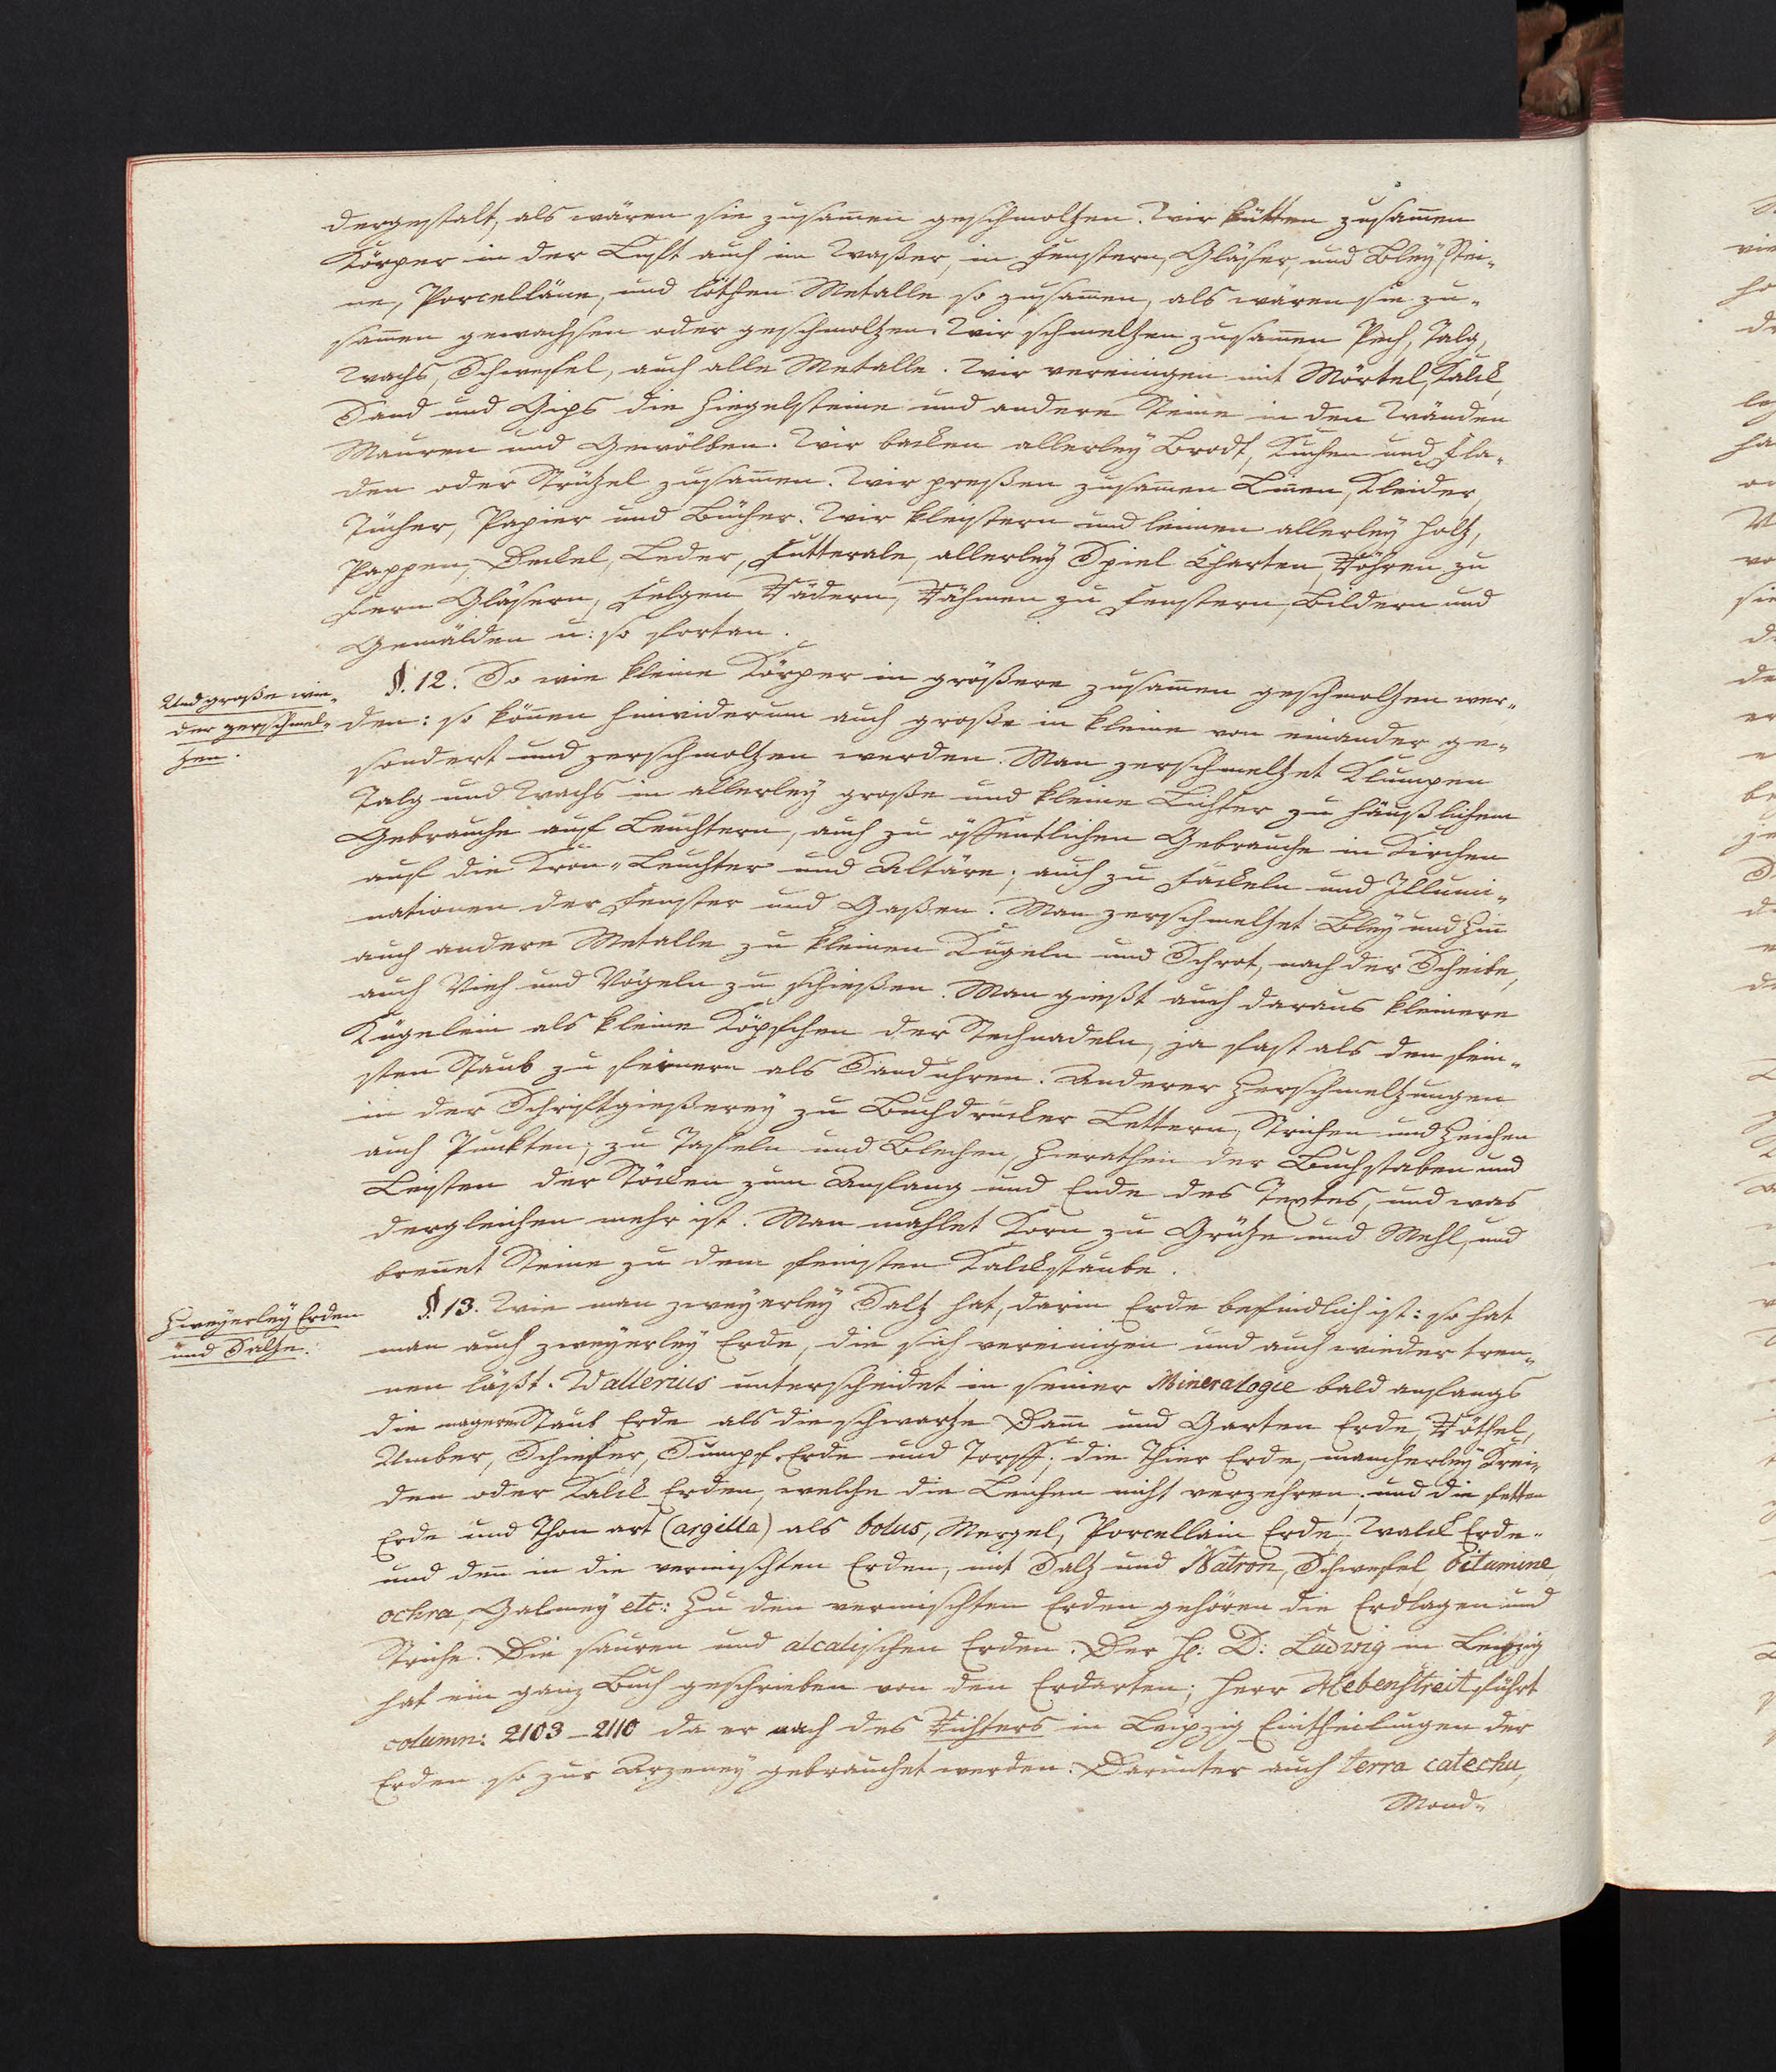 dergestalt, als wären sie zusam̄en geschmoltzen. Wir kütten zusam̄en
Körper in der Luft auch im Waßer, in Fenstern, Gläser, und Bley, Stei-
ne, Porcelläne, und löthen Metalle so zusam̄en, als wären sie zu-
sam̄en gewachsen oder geschmoltzen. Wir schmeltzen zusam̄en Pech, Talg,
Wachs, Schwefel, auch alle Metalle. Wir vereinigen mit Mörtel, Kalck,
Sand und Gips die Ziegelsteine und andere Steine in den Wänden
Mauren und Gewölben. Wir backen allerley Brodt, Kuchen und Fla-
den oder Strützel zusam̄en. Wir preßen zusam̄en Lin̄en, Kleider,
Tücher, Papier und Bücher. Wir kleistern und leimen allerley Holtz,
Pappen, Deckel, Leder, Futterale, allerley Spiel Charten, Röhren zu
Fern Gläsern, Felgen Rädern, Rähmen zu Fenstern, Bildern und
Gemälden u: so fortan.
Und große wie-
der zerschmel-
tzen.
§. 12. So wie kleine Körper in größere zusam̄en geschmoltzen wer-
den: so kön̄en hinwiderum auch große in kleine von einander ge-
sondert und zerschmoltzen werden. Man zerschmeltzet Klumpen
Talg und Wachs in allerley große und kleine Lichter zu häußlichem
Gebrauche auf Leuchtern, auch zu öffentlichen Gebrauche in Kirchen
auf die Kron-Leuchter und Altäre; auch zu Fackeln und Illumi-
nationen der Fenster und Gaßen. Man zerschmeltzet Bley und Zin̄
auch andere Metalle zu kleinen Kugeln und Schrot, nach der Scheibe,
auch Vieh und Vögeln zu schießen. Man gießt auch daraus kleinere
Kügelein als kleine Köpfchen der Stechnadeln, ja fast als den fein-
sten Staub zu feinern als Sanduhren. Anderer Zerschmeltzungen
in der Schriftgießerey zu Buchdrucker Lettern, Strichen und Zeichen
auch Punkten; zu Tafeln und Blechen, Zierathen der Buchstaben und
Leisten der Stöcken zum Anfang und Ende des Textes, und was
dergleichen mehr ist. Man mahlet Korn zu Grütze und Mehl, und
bren̄et Steine zu dem feinsten Kalckstaube.
Zweyerley Erden
und Saltze.
§. 13. Wie man zweyerley Saltz hat, darin Erde befindlich ist: so hat
man auch zweyerley Erde, die sich vereinigen und auch wieder tren-
nen läßt. Wallerius unterscheidet in seiner Mineralogie bald anfangs
die magere Staub Erde als die schwartze Dam̄ und Garten Erde, Röthel,
Umber, Schiefer, Sumpf-Erde und Torff; die Thier Erde, mancherley Krei-
den oder Kalck Erden, welche die Leichen nicht verzehren; und die fetten
Erde und Thon art (argilla) als bolus, Mergel, Porcellain Erde, Walck Erde-
und den̄ in die vermischten Erden, mit Saltz und Natron, Schwefel, bitumine
ochra, Galmey etc: Zu den vermischten Erden gehören die Erdlagen und
Striche. Die sauren und alcalischen Erden. Der H: D: Ludwig in Leipzig
hat ein ganz Buch geschrieben von den Erdarten; Herr Hebenstreit führt
column: 2103-2110 da er nach des Richters in Leipzig Eintheilungen der
Erden so zur Arzeney gebrauchet werden. Darunter auch terra catechu,
Mond-